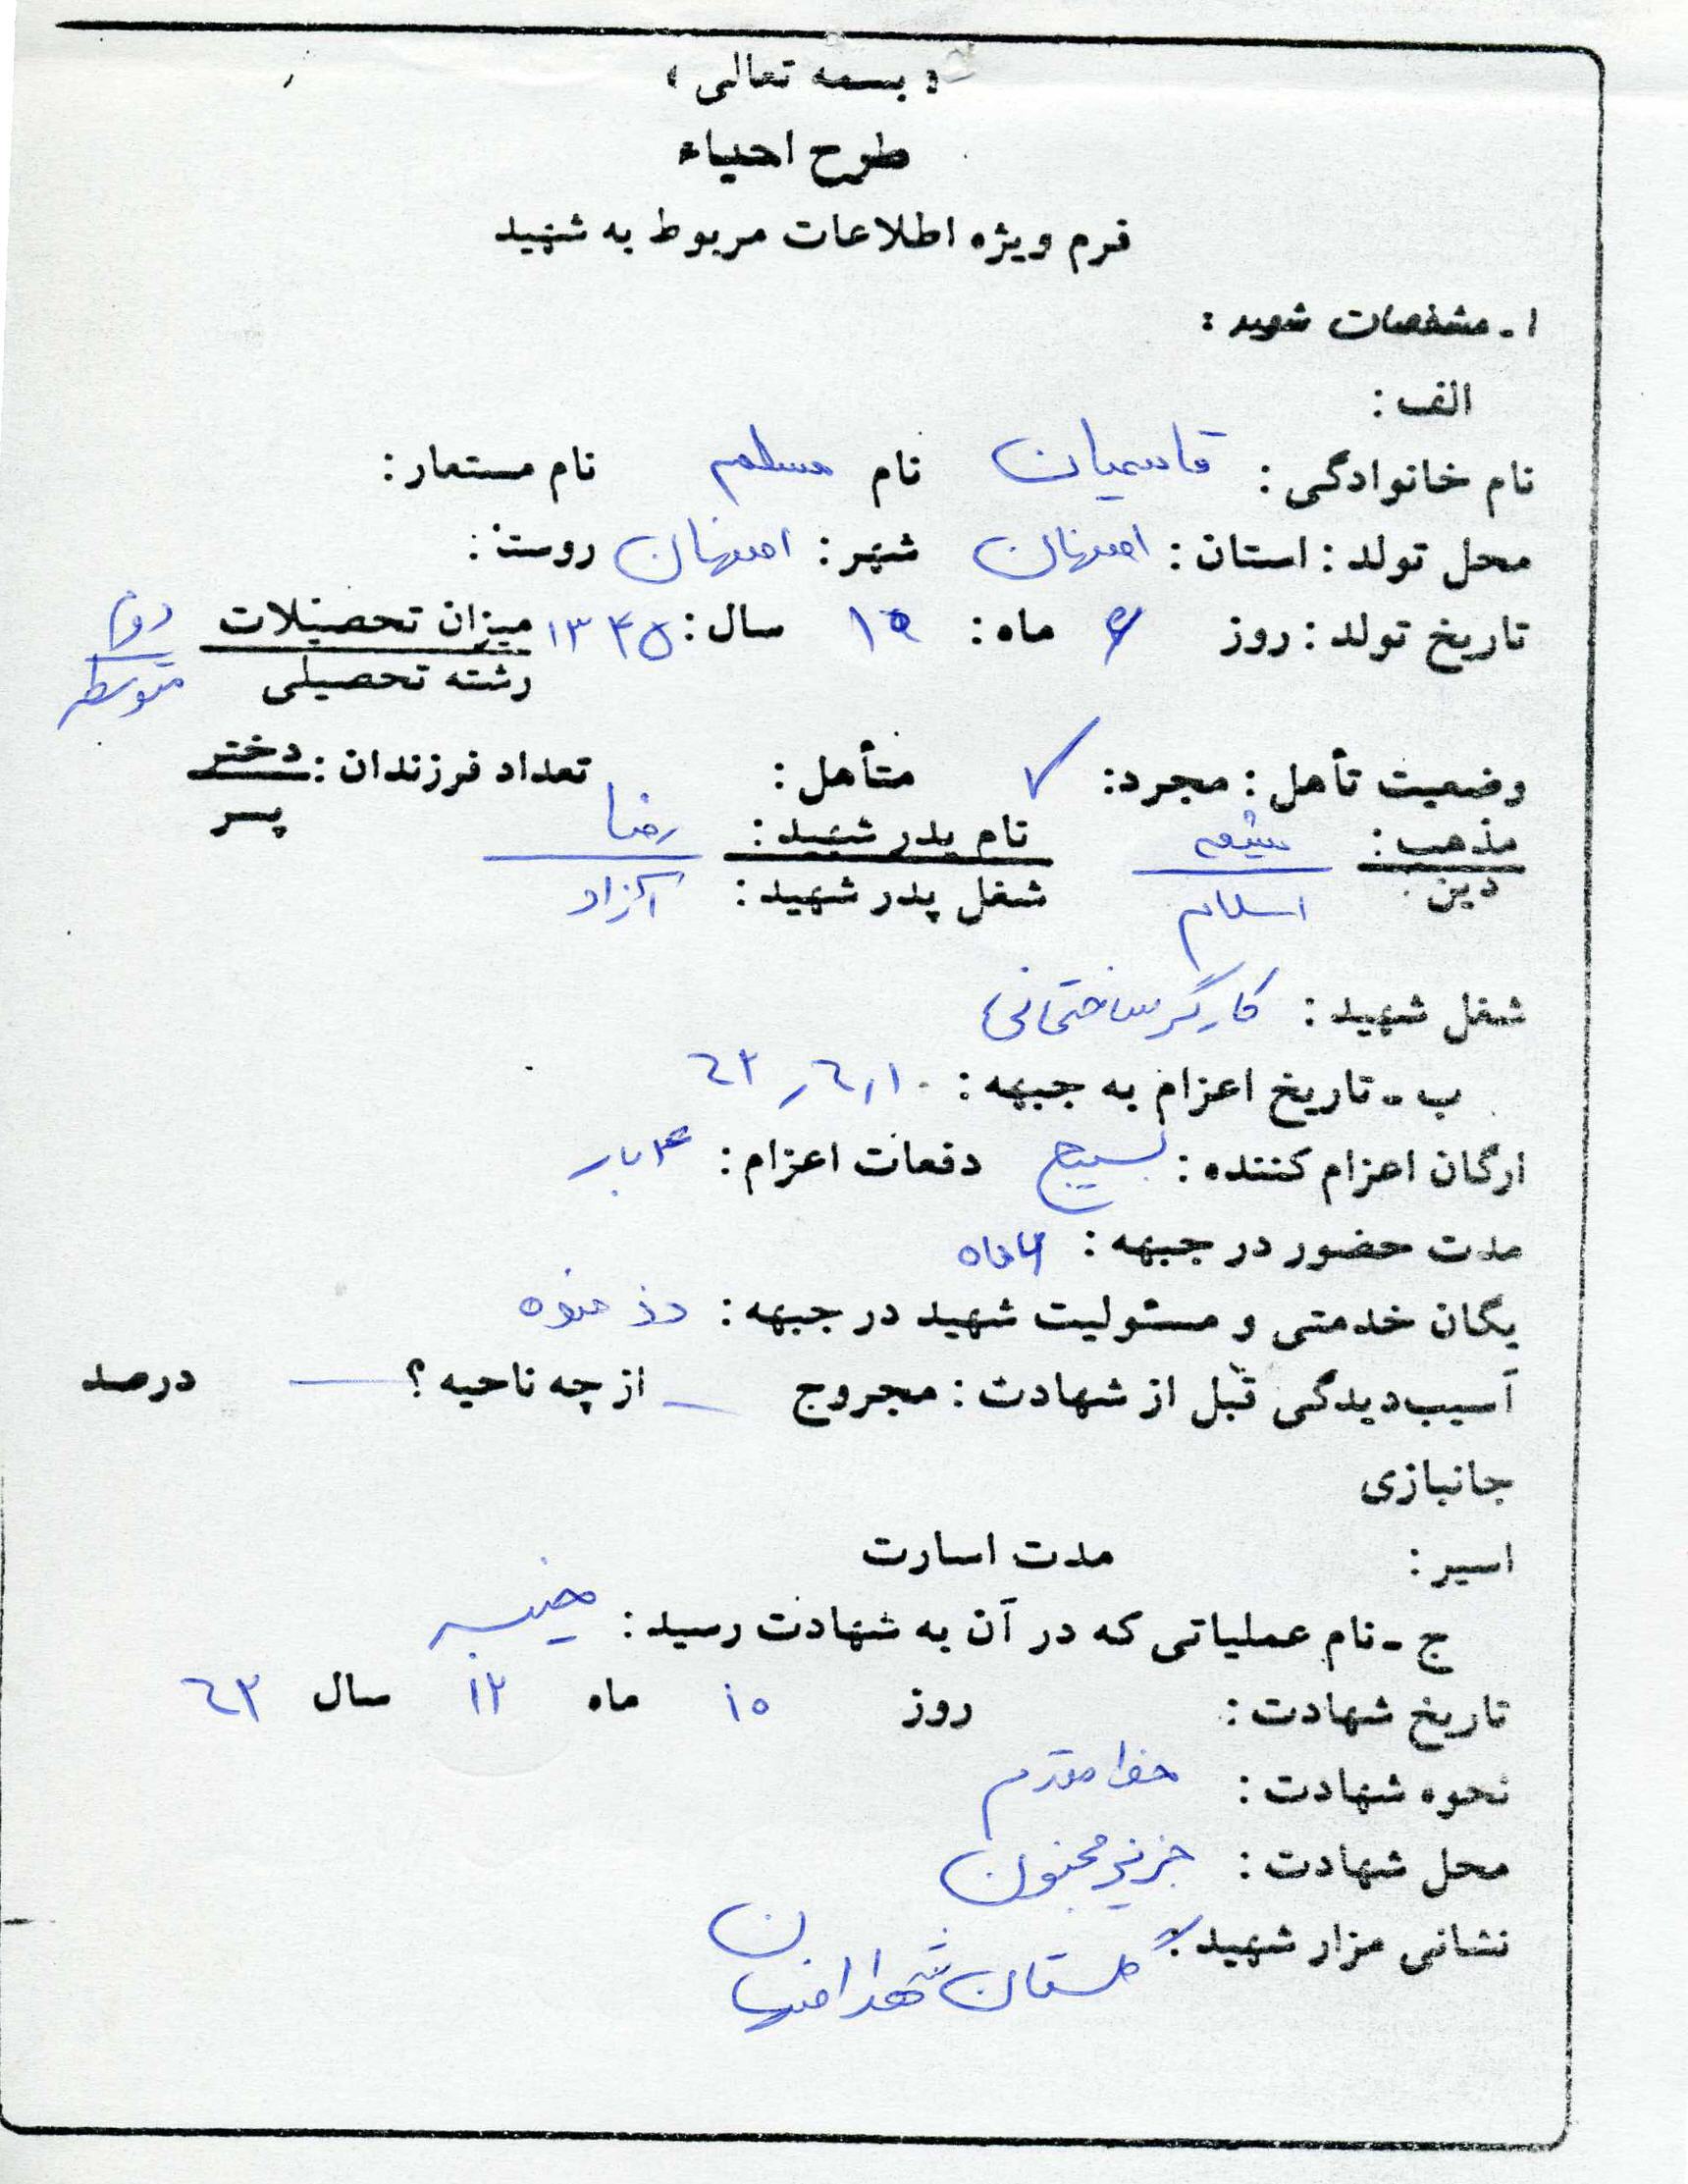 « بسمه تعالی »
طرح احیاء
فرم ویژه اطلاعات مربوط به شهید
۱ـ مشخصات شهید :
الف :
نام خانوادگی : قاسمیان نام مسلم نام مستعار :
محل تولد : استان : اصفهان شهر : اصفهان روستا :
تاریخ تولد : روز ۶ ماه : سال : ۱۳۴۵ میزان تحصیلات دوم
رشته تحصیلی متوسطه
وضعیت تأهل : مجرد : ✓ متأهل : تعداد فرزندان : دختر
پسر
مذهب : شیعه نام پدر شهید : رضا
دین اسلام شغل پدر شهید : آزاد
شغل شهید : کارگر ساختمانی
ب ـ تاریخ اعزام به جبهه : ۱۰ر۶ر۶۳
ارگان اعزام کننده : بسیج دفعات اعزام : بار
مدت حضور در جبهه : ماه
یگان خدمتی و مسئولیت شهید در جبهه :
آسیب‌دیدگی قبل از شهادت : مجروح — از چه ناحیه ؟ — درصد
جانبازی
اسیر : مدت اسارت
ج ـ نام عملیاتی که در آن به شهادت رسید : خیبر
تاریخ شهادت : روز ۱۵ ماه ۱۲ سال ۶۳
نحوه شهادت : خط مقدم
محل شهادت : جزیره مجنون
نشانی مزار شهید : گلستان شهدا اصفهان